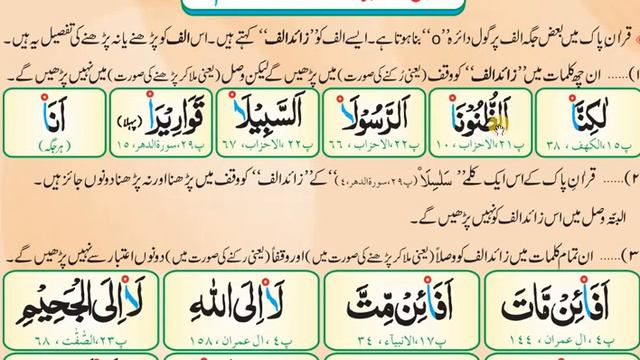 قرآنِ پاک میں بعض جگہ الف پر گول دائرہ "o" بنا ہوتا ہے۔ ایسے الف کو "زائد الف" کہتے ہیں۔ اس الف کو پڑھنے یا نہ پڑھنے کی تفصیل یہ ہیں۔
﴿۱﴾...... ان چھ کلمات میں "زائد الف" کو وقف (یعنی رُکنے کی صورت) میں پڑھیں گے لیکن وصل (یعنی ملا کر پڑھنے کی صورت) میں نہیں پڑھیں گے۔
لٰكِنَّا۠ الظُّنُوْنَا۠ الرَّسُوْلَا۠ السَّبِيْلَا۠ قَوَارِيْرَا۠ (پہلا) اَنَا۠
پ۱۵، الکھف، ۳۸ پ۲۱، الاحزاب، ۱۰ پ۲۲، الاحزاب، ۶۶ پ۲۲، الاحزاب، ۶۷ پ۲۹، سورۃ الدھر، ۱۵ (ہر جگہ)
﴿۲﴾...... قرآنِ پاک کے اس ایک کلمے "سَلٰسِلَا۠" (پ۲۹، سورۃ الدھر، ۴) کے "زائد الف" کو وقف میں پڑھنا اور نہ پڑھنا دونوں جائز ہیں۔
البتّہ وصل میں اس زائد الف کو نہیں پڑھیں گے۔
﴿۳﴾...... ان تمام کلمات میں زائد الف کو وصلاً (یعنی ملا کر پڑھنے کی صورت میں) اور وقفاً (یعنی رکنے کی صورت میں) دونوں اعتبار سے نہیں پڑھیں گے۔
اَفَا۠ئِنْ مَّاتَ اَفَا۠ئِنْ مِّتَّ لَا۠ اِلَى اللّٰهِ لَا۠ اِلَى الْجَحِيْمِ
پ۴، ال عمران، ۱۴۴ پ۱۷، الانبیآء، ۳۴ پ۴، ال عمران، ۱۵۸ پ۲۳، الصّٰفّٰت، ۶۸